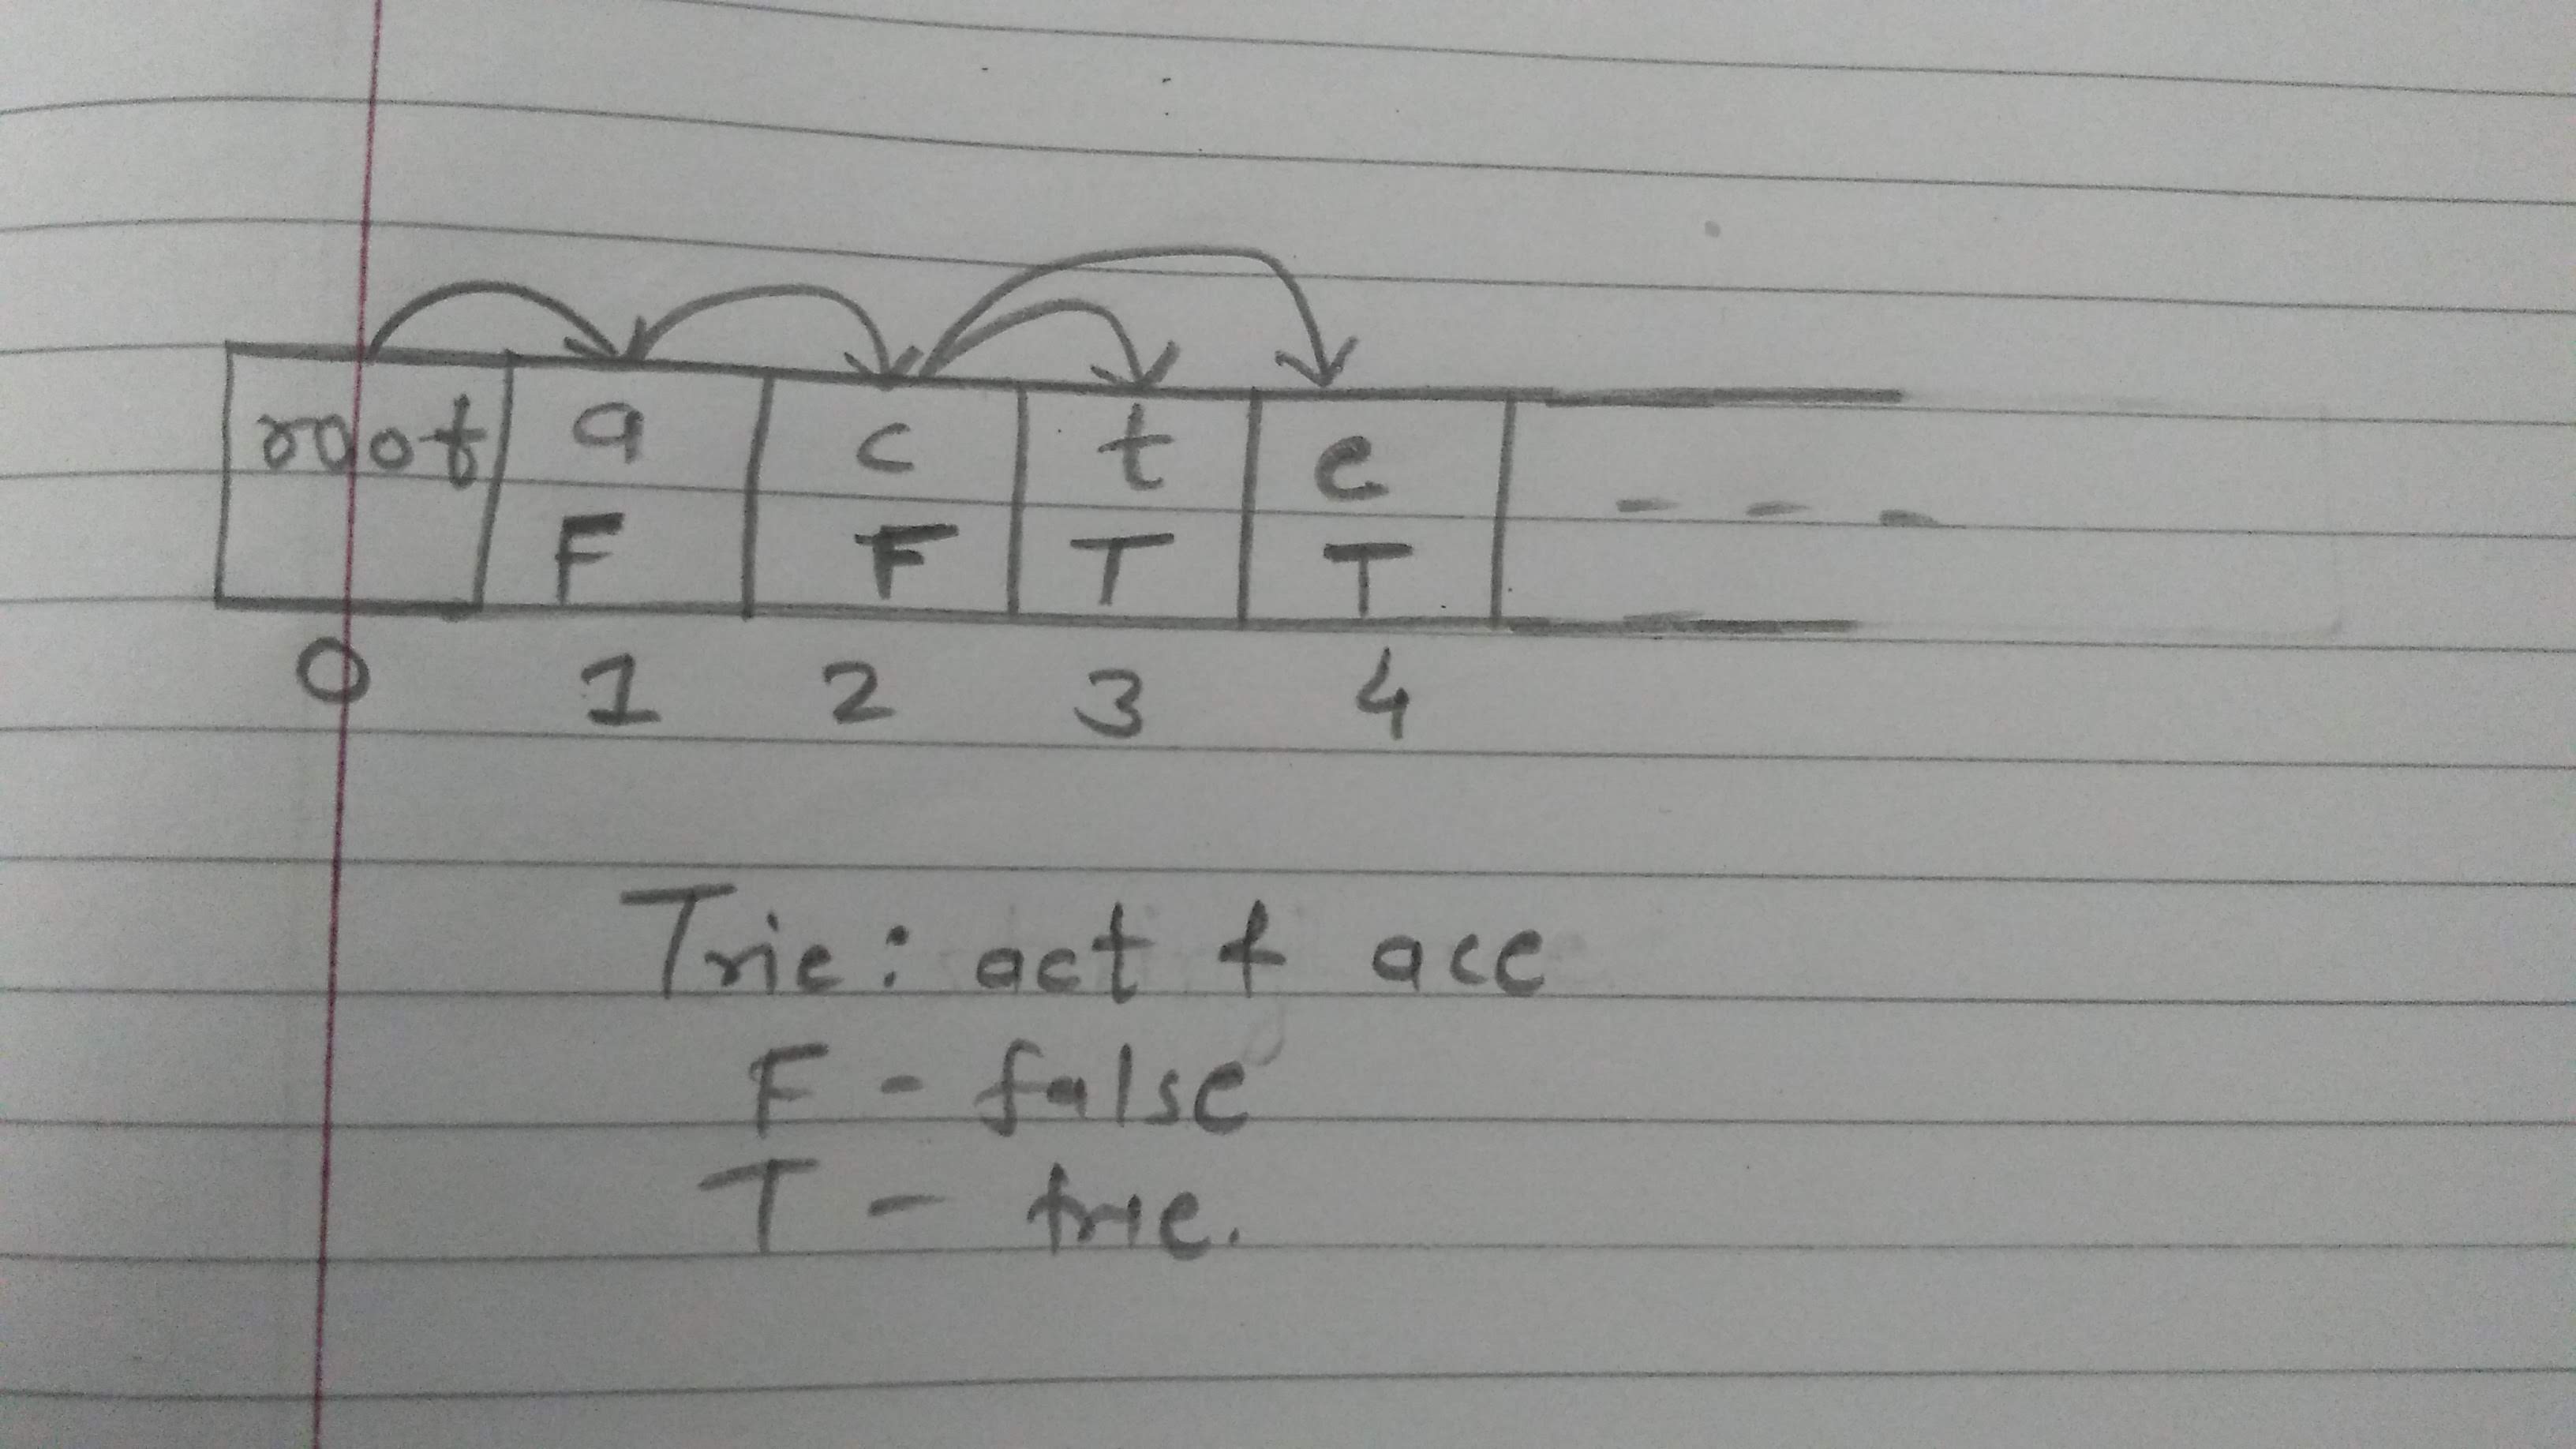 root a c t e
F F T T
0 1 2 3 4
Trie: act & ace
F - false
T - trie.